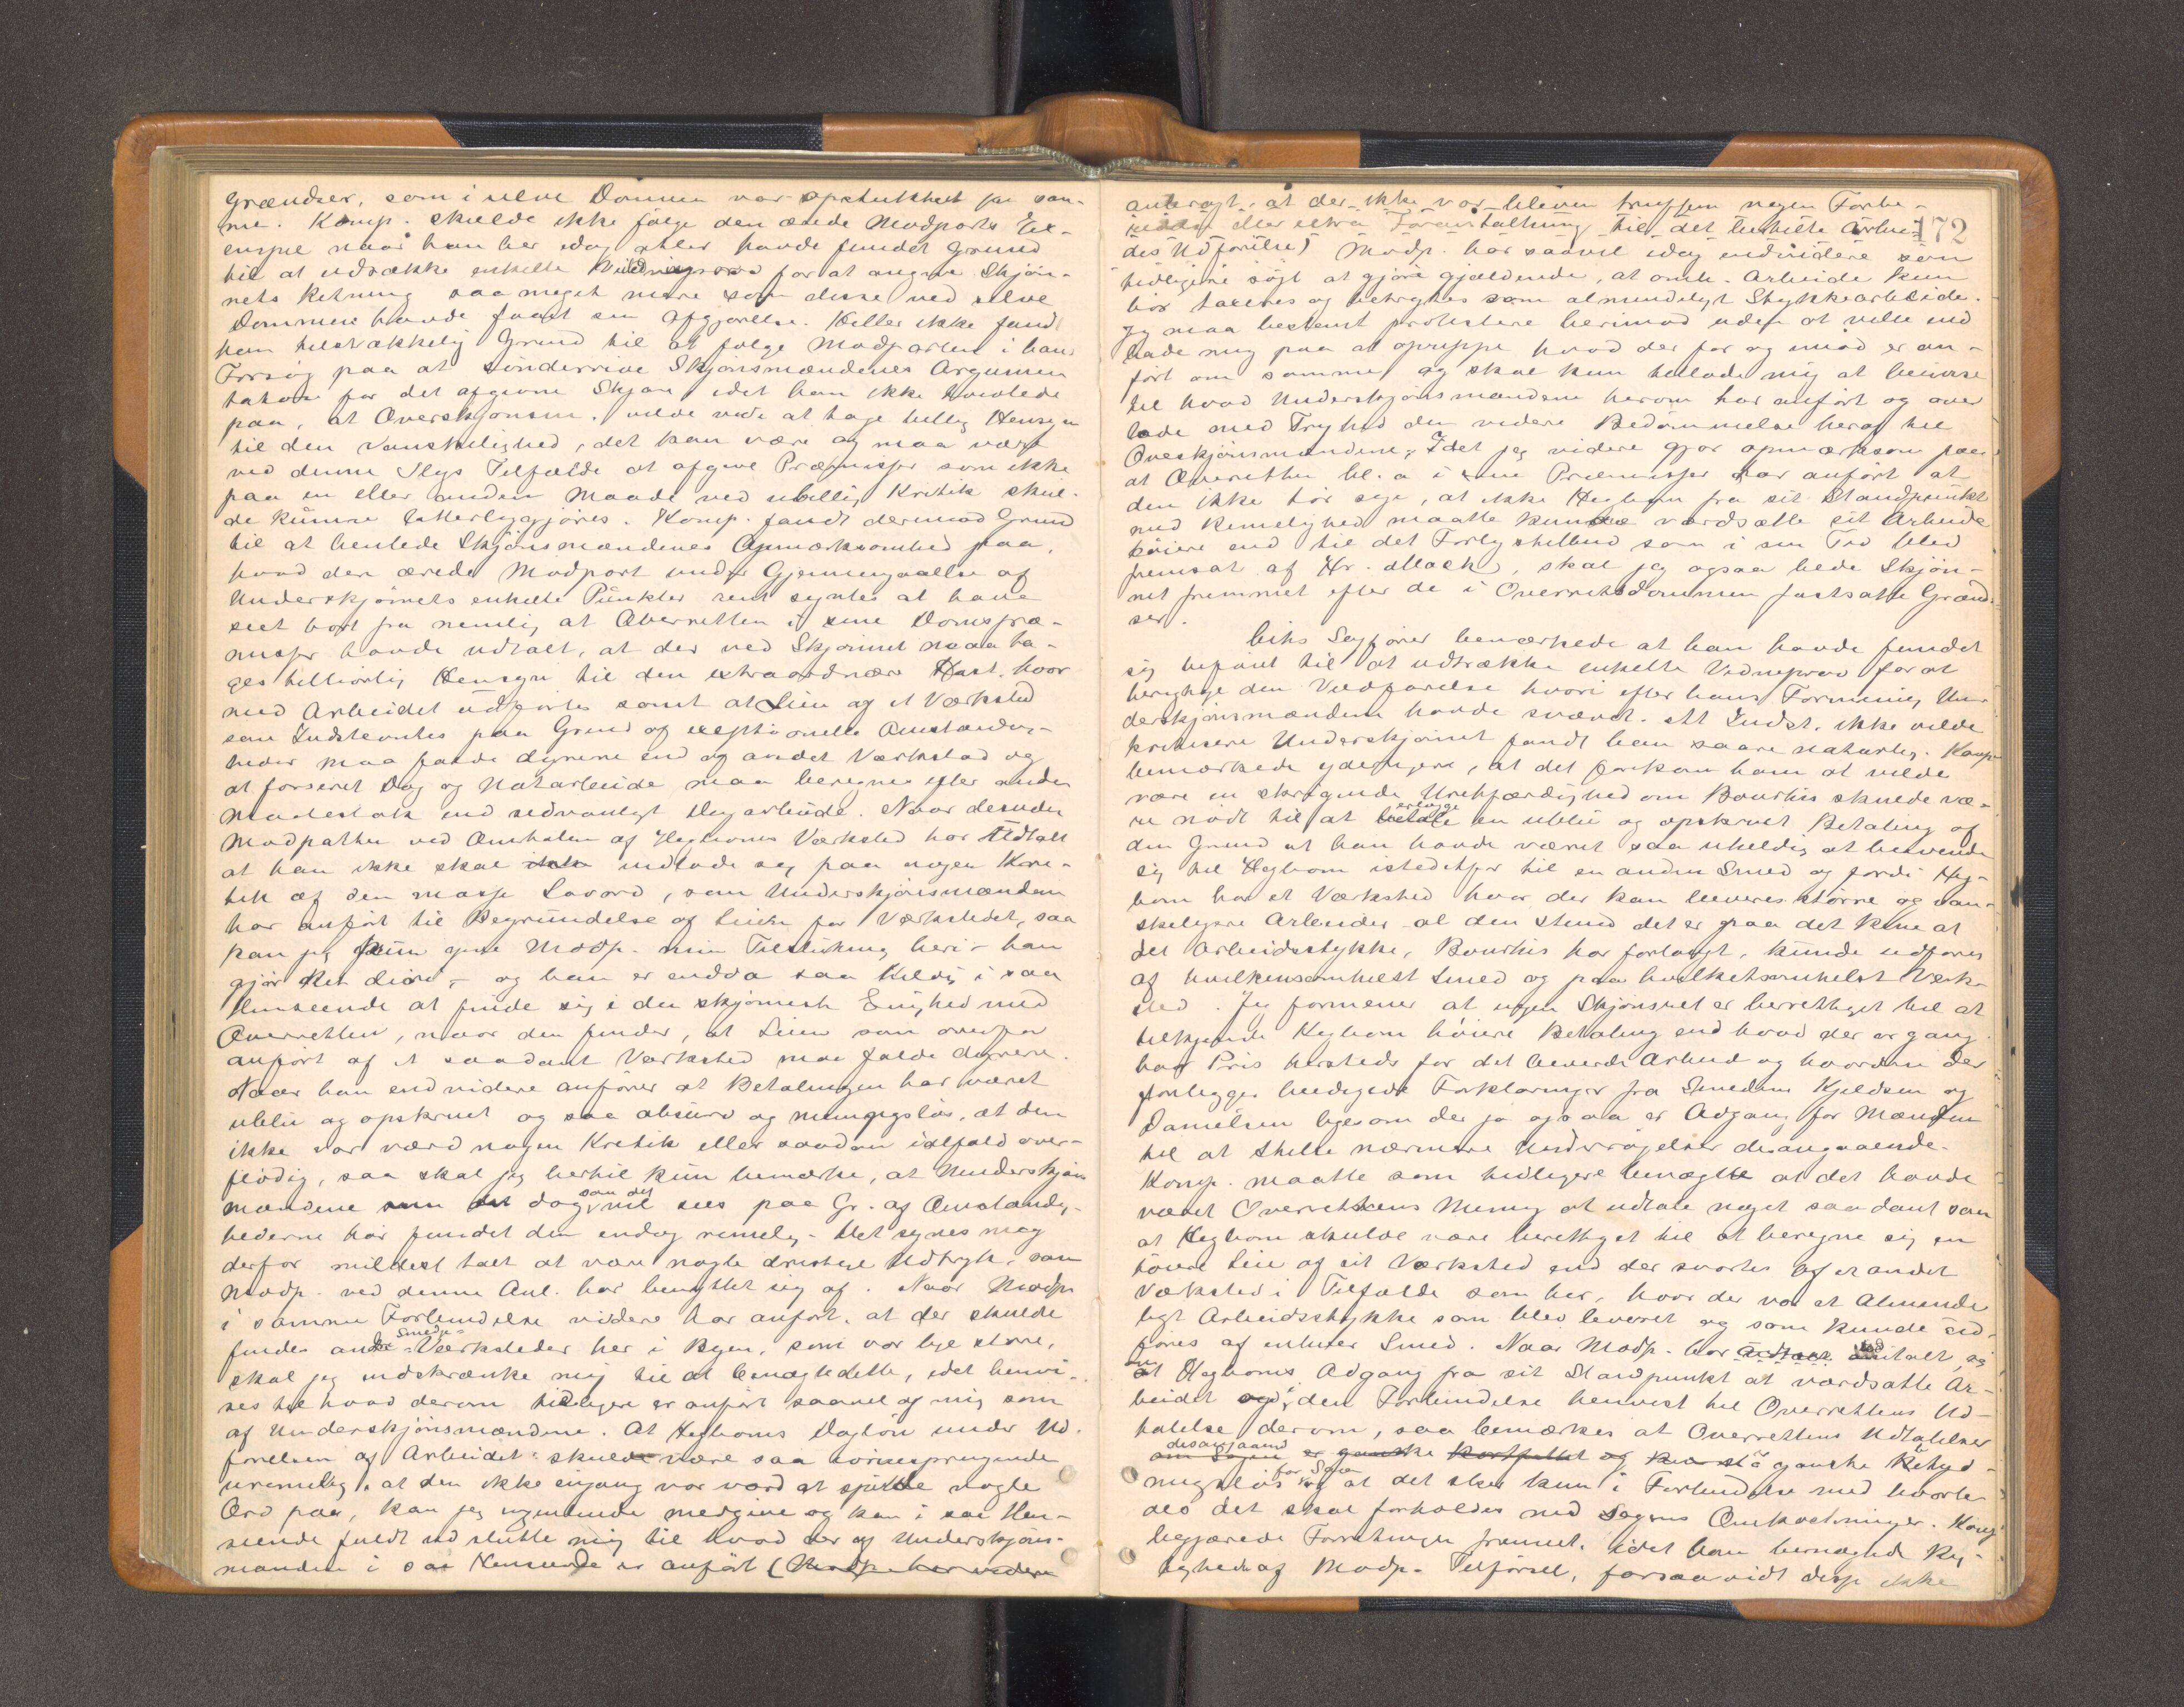 Grændser, som i selve Dommen var opstukket for sam-
me. Komp. skulde ikke følge den ærede Modparts Ex-
empel naar han her idag atter havde fundet Grund
til at udtrække enkelte Vidneprov for at angive Skjøn-
nets Retning saa meget mere som disse ved selve
Dommen havde faaet sin Afgjørelse. Heller ikke fand
han tilstrækkelig Grund til at følge Modparten i hans
Forsøg paa at sønderrive Skjønsmændenes Argumen
tation for det afgivne Skjøn idet han ikke tvivlede
paa, at Overskjønsm. vilde vide at tage billig Hensyn
til den Vanskelighed, det kan være og maa være
ved denne Slags Tilfælde at afgive Præmisser som ikke
paa en eller anden Maade ved ubillig Kritik skul-
de kunne latterliggjøres. Komp. fandt derimod Grund
til at henlede Skjønsmændenes Opmærksomhed paa,
hvad den ærede Modpart under Gjennemgaaelse af
Underskjønnets enkelte Punkter rent syntes at have
seet bort fra nemlig at Overretten i sine Domspræ-
misser havde udtalt, at der ved Skjønnet maa ta-
ges tilbørlig Hensyn til den extraordinære Hast, hvor
med Arbeidet udførtes samt at Leien af et Værksted
som Indstevntes paa Grund af exeptionelle Omstændig-
heder maa falde dyrere end af andet Værksted og
at forseret Dag og Natarbeide maa beregnes efter anden
Maalestok end sedvanligt Dagarbeide. Naar desuden
Modparten ved Omtalen af Heghoms Værksted har udtalt
at han ikke skal indlade sig paa nogen Kri-
tik af den masse Lovord, som Underskjønsmændene
har anført til Begrundelse af Leien for Værkstedet, saa
kan jeg kun give Modp. min Tilslutning heri - han
gjør Ret deri - og han er endda saa heldig i saa
Henseende at finde sig i den skjønneste Enighed med
Overretten, naar den finder, at Leien som ovenfor
anført af et saadant Værksted maa falde dyrere.
Naar han end videre anfører at Betalingen har været
ublu og opskruet og saa absurd og meningsløs, at den
ikke var værd nogen Kritik eller saadan ialfald over-
flødig, saa skal jeg hertil kun bemærke, at Underskjøns
mændene dog som det vil sees paa Gr. af Omstændig-
hederne har fundet den endog rimelig. Det synes mig
derfor mildest talt at være nogle drøstige Udtryk, som
Modp. ved denne Anl. har benyttet sig af. Naar Modp.
i samme Forbindelse videre har anført, at der skulde
findes andre Smede-Værksteder her i Byen, som var lige større,
skal jeg indskrænke mig til at benægte dette, idet henvi-
ses til hvad derom tidligere er anført saavel af mig som
af Underskjønsmændene. At Heghoms Dagløn under Ud-
førelsen af Arbeidet skulde være saa iøinespringende
urimelig, at den ikke engang var værd at spilde nogle
Ord paa, kan jeg ingenlunde medgive og kan i saa Hen-
seende fuldt ud slutte mig til hvad der af Underskjøns-
mændene i saa Henseende er anført (Modp. har videre
anbragt, at der ikke var bleven truffen nogen Forbe-
172
eller extra Foranstaltning til det bestilte Arbei-
des Udførelse) Modp. har saavel idag endvidere som
tidligere søgt at gjøre gjældende, at omh. Arbeide kun
bør taxeres og betragtes som almindeligt Stykkearbeide.
Jeg maa bestemt protestere herimod uden at ville ind
lade mig paa at oprippe hvad der for og imod er an-
ført om samme og skal kun tillade mig at henvise
til hvad Underskjønsmændene herom har anført og over
lade med Tryghed den videre Bedømmelse heraf til
Overskjønsmændene, Idet jeg videre gjør opmærksom paa
at Overretten bl. a. i sine Præmisser har anført at
den ikke tør sige, at ikke Heghom fra sit Standpunkt
med Rimelighed maatte kunde værdsætte sit Arbeide
høiere end til det Forligstilbud som i sin Tid blev
fremsat af Hr. Mack, skal jeg ogsaa bede Skjøn-
net fremmet efter de i Overretsdommen fastsatte Grænd-
ser.
Cits Sagfører bemærkede at han havde fundet
sig beføiet til at udtrække enkelte Vidneprov for at
berigtige den Vildfarelse hvori efter hans Formening Un-
derskjønsmændene havde svævet. At Indst. ikke vilde
kritisere Underskjønnet fandt han saare naturlig. Komp.
bemærkede yderligere, at det forekom ham at vilde
være en skrigende Uretfærdighed om Bourhis skulde væ-
re nødt til at erlægge en ublu og opskruet Betaling af
den Grund at han havde været saa uheldig at henvende
sig til Heghom istedetfor til en anden Smed og fordi Heg-
hom har et Værksted hvor der kan leveres større og van-
skeligere Arbeider al den Stund det er paa det Rene at
det Arbeidsstykke, Bourhis har forlangt, kunde udføres
af hvilkensomhelst Smed og paa hvilketsomhelst Værk-
sted. Jeg formener at ingen Skjønsret er berettiget til at
tilkjende Heghom høiere Betaling end hvad der er gang-
bar Pris herstede for det leverede Arbeid og hvordan der
foreligger beedigede Forklaringer fra Smedene Kjeldsen og
Danielsen ligesom der jo ogsaa er Adgang for Mændene
til at stille nærmere Undersøgelser desangaaende.
Komp. maatte som tidligere benægte at det havde
været Overrettens Mening at udtale noget saadant som
at Heghom skulde være berettiget til at beregne sig en
høiere Leie af sit Værksted end der svartes af et andet
Værksted i Tilfælde som her, hvor der var et Alminde-
ligt Arbeidsstykke som blev leveret og som kunde ud-
føres af enhver Smed. Naar Modp. har udtalt sig
om Heghoms Adgang fra sit Standpunkt at værdsætte Ar-
beidet og i den Forbindelse henvist til Overrettens Ud-
talelse derom, saa bemærkes at Overrettens Udtalelser
desangaaende er ganske kortfattet og ganske Betyd-
ningsløs for Sagen og at det sker kun i Forbindelse med hvorle-
des det skal forholdes med Sagens Omkostninger. Komp.
begjærede Forretningen fremmet, idet han benægtede Rig-
tigheden af Modp. Tilførsel, forsaavidt disse ikke